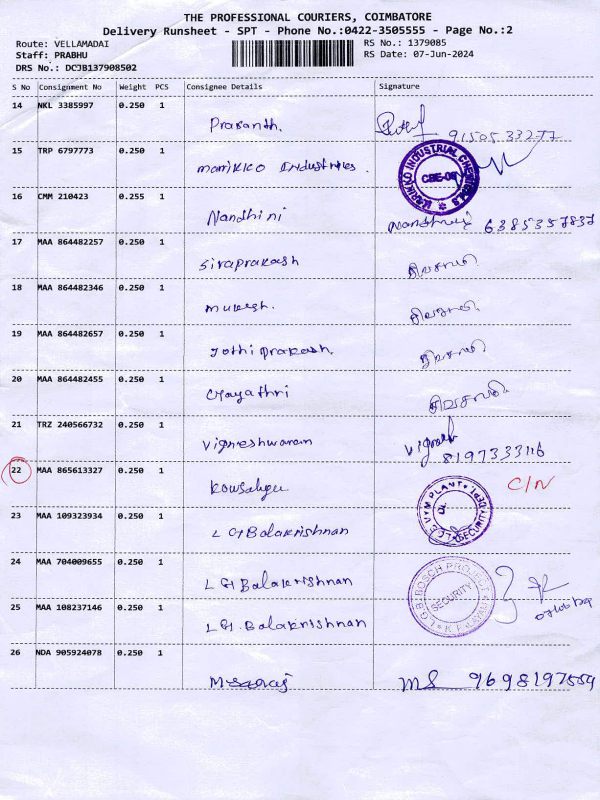 THE PROFESSIONAL COURIERS, COIMBATORE
Delivery Runsheet - SPT - Phone No.:0422-3505555 - Page No.:2
Route: VELLAMADAI RS No.: 1379085
Staff: PRABHU RS Date: 07-Jun-2024
DRS No.: DCJB137908502
S No Consignment No Weight PCS Consignee Details Signature
14 NKL 3385997 0.250 1
Prasanth. 91505 33277
15 TRP 6797773 0.250 1
Marikko Industries.
MARIKKO INDUSTRIAL CHEMICALS
16 CMM 210423 0.255 1
Nandhini 6385357837
17 MAA 864482257 0.250 1
Sivaprakash
18 MAA 864482346 0.250 1
Mukesh.
19 MAA 864482657 0.250 1
Jothi Prakash.
20 MAA 864482455 0.250 1
Gayathri
21 TRZ 240566732 0.250 1
Vigneshwaram Vignesh
8197333116
22 MAA 865613327 0.250 1 C/N
23 MAA 109323934 0.250 1
L G Balakrishnan
24 MAA 704009655 0.250 1
L G Balakrishnan
SECURITY
25 MAA 108237146 0.250 1
L G. Balakrishnan
26 NDA 905924078 0.250 1
MS 9698197554